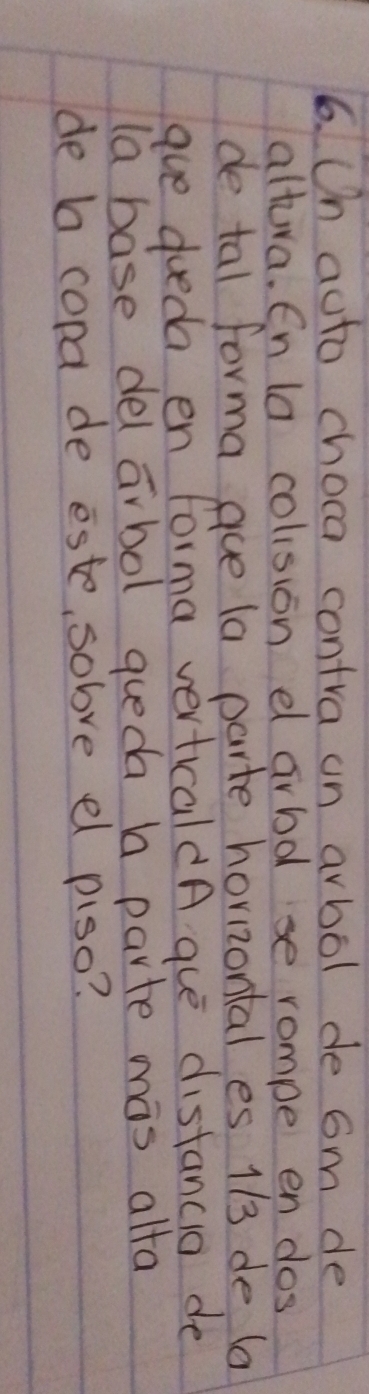 6. Un auto choca contra un arból de 6m de
altura. En la colisión el árbol se rompe en dos
de tal forma que la parte horizontal es 1/3 de la
que queda en forma vertical ¿A qué distancia de
la base del árbol queda la parte más alta
de la copa de éste, sobre el piso?